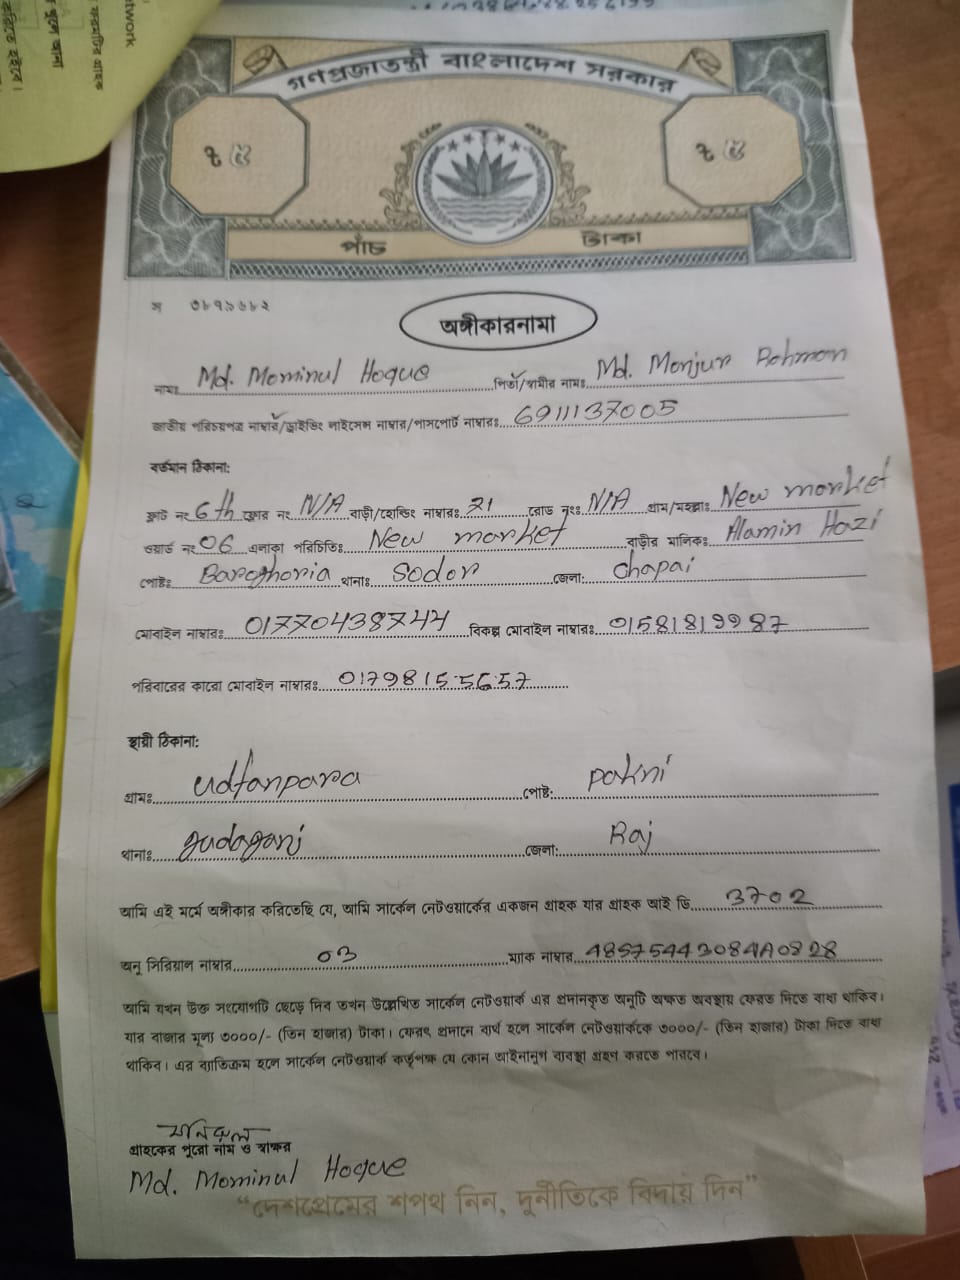 গণপ্রজাতন্ত্রী বাংলাদেশ সরকার
৳ ৫ ৳ ৫
পাঁচ টাকা
৩৮৭১৬৮২
অঙ্গীকারনামা
নামঃ Md. Mominul Hoque পিতা/স্বামীর নামঃ Md. Monjur Rohmon
জাতীয় পরিচয়পত্র নাম্বার/ড্রাইভিং লাইসেন্স নাম্বার/পাসপোর্ট নাম্বারঃ 6911137005
বর্তমান ঠিকানা:
ফ্লাট নং 6th ফ্লোর নং N/A বাড়ী/হোল্ডিং নাম্বারঃ 21 রোড নংঃ N/A গ্রাম/মহল্লাঃ New market
ওয়ার্ড নং 06 এলাকা পরিচিতিঃ New market বাড়ীর মালিকঃ Alamin Hazi
পোষ্টঃ Baroghoria থানাঃ Sodor জেলা: Chapai
মোবাইল নাম্বারঃ 01770438744 বিকল্প মোবাইল নাম্বারঃ 01581819987
পরিবারের কারো মোবাইল নাম্বারঃ 01798155657
স্থায়ী ঠিকানা:
গ্রামঃ পোষ্ট:
থানাঃ জেলা: Raj
আমি এই মর্মে অঙ্গীকার করিতেছি যে, আমি সার্কেল নেটওয়ার্কের একজন গ্রাহক যার গ্রাহক আই ডি 3702
অনু সিরিয়াল নাম্বার 03 ম্যাক নাম্বার 48575443084A0828
আমি যখন উক্ত সংযোগটি ছেড়ে দিব তখন উল্লেখিত সার্কেল নেটওয়ার্ক এর প্রদানকৃত অনুটি অক্ষত অবস্থায় ফেরত দিতে বাধ্য থাকিব।
যার বাজার মূল্য ৩০০০/- (তিন হাজার) টাকা। ফেরৎ প্রদানে ব্যর্থ হলে সার্কেল নেটওয়ার্ককে ৩০০০/- (তিন হাজার) টাকা দিতে বাধ্য
থাকিব। এর ব্যতিক্রম হলে সার্কেল নেটওয়ার্ক কর্তৃপক্ষ যে কোন আইনানুগ ব্যবস্থা গ্রহণ করতে পারবে।
গ্রাহকের পুরো নাম ও স্বাক্ষর
Md. Mominul Hoque
“দেশপ্রেমের শপথ নিন, দুর্নীতিকে বিদায় দিন”